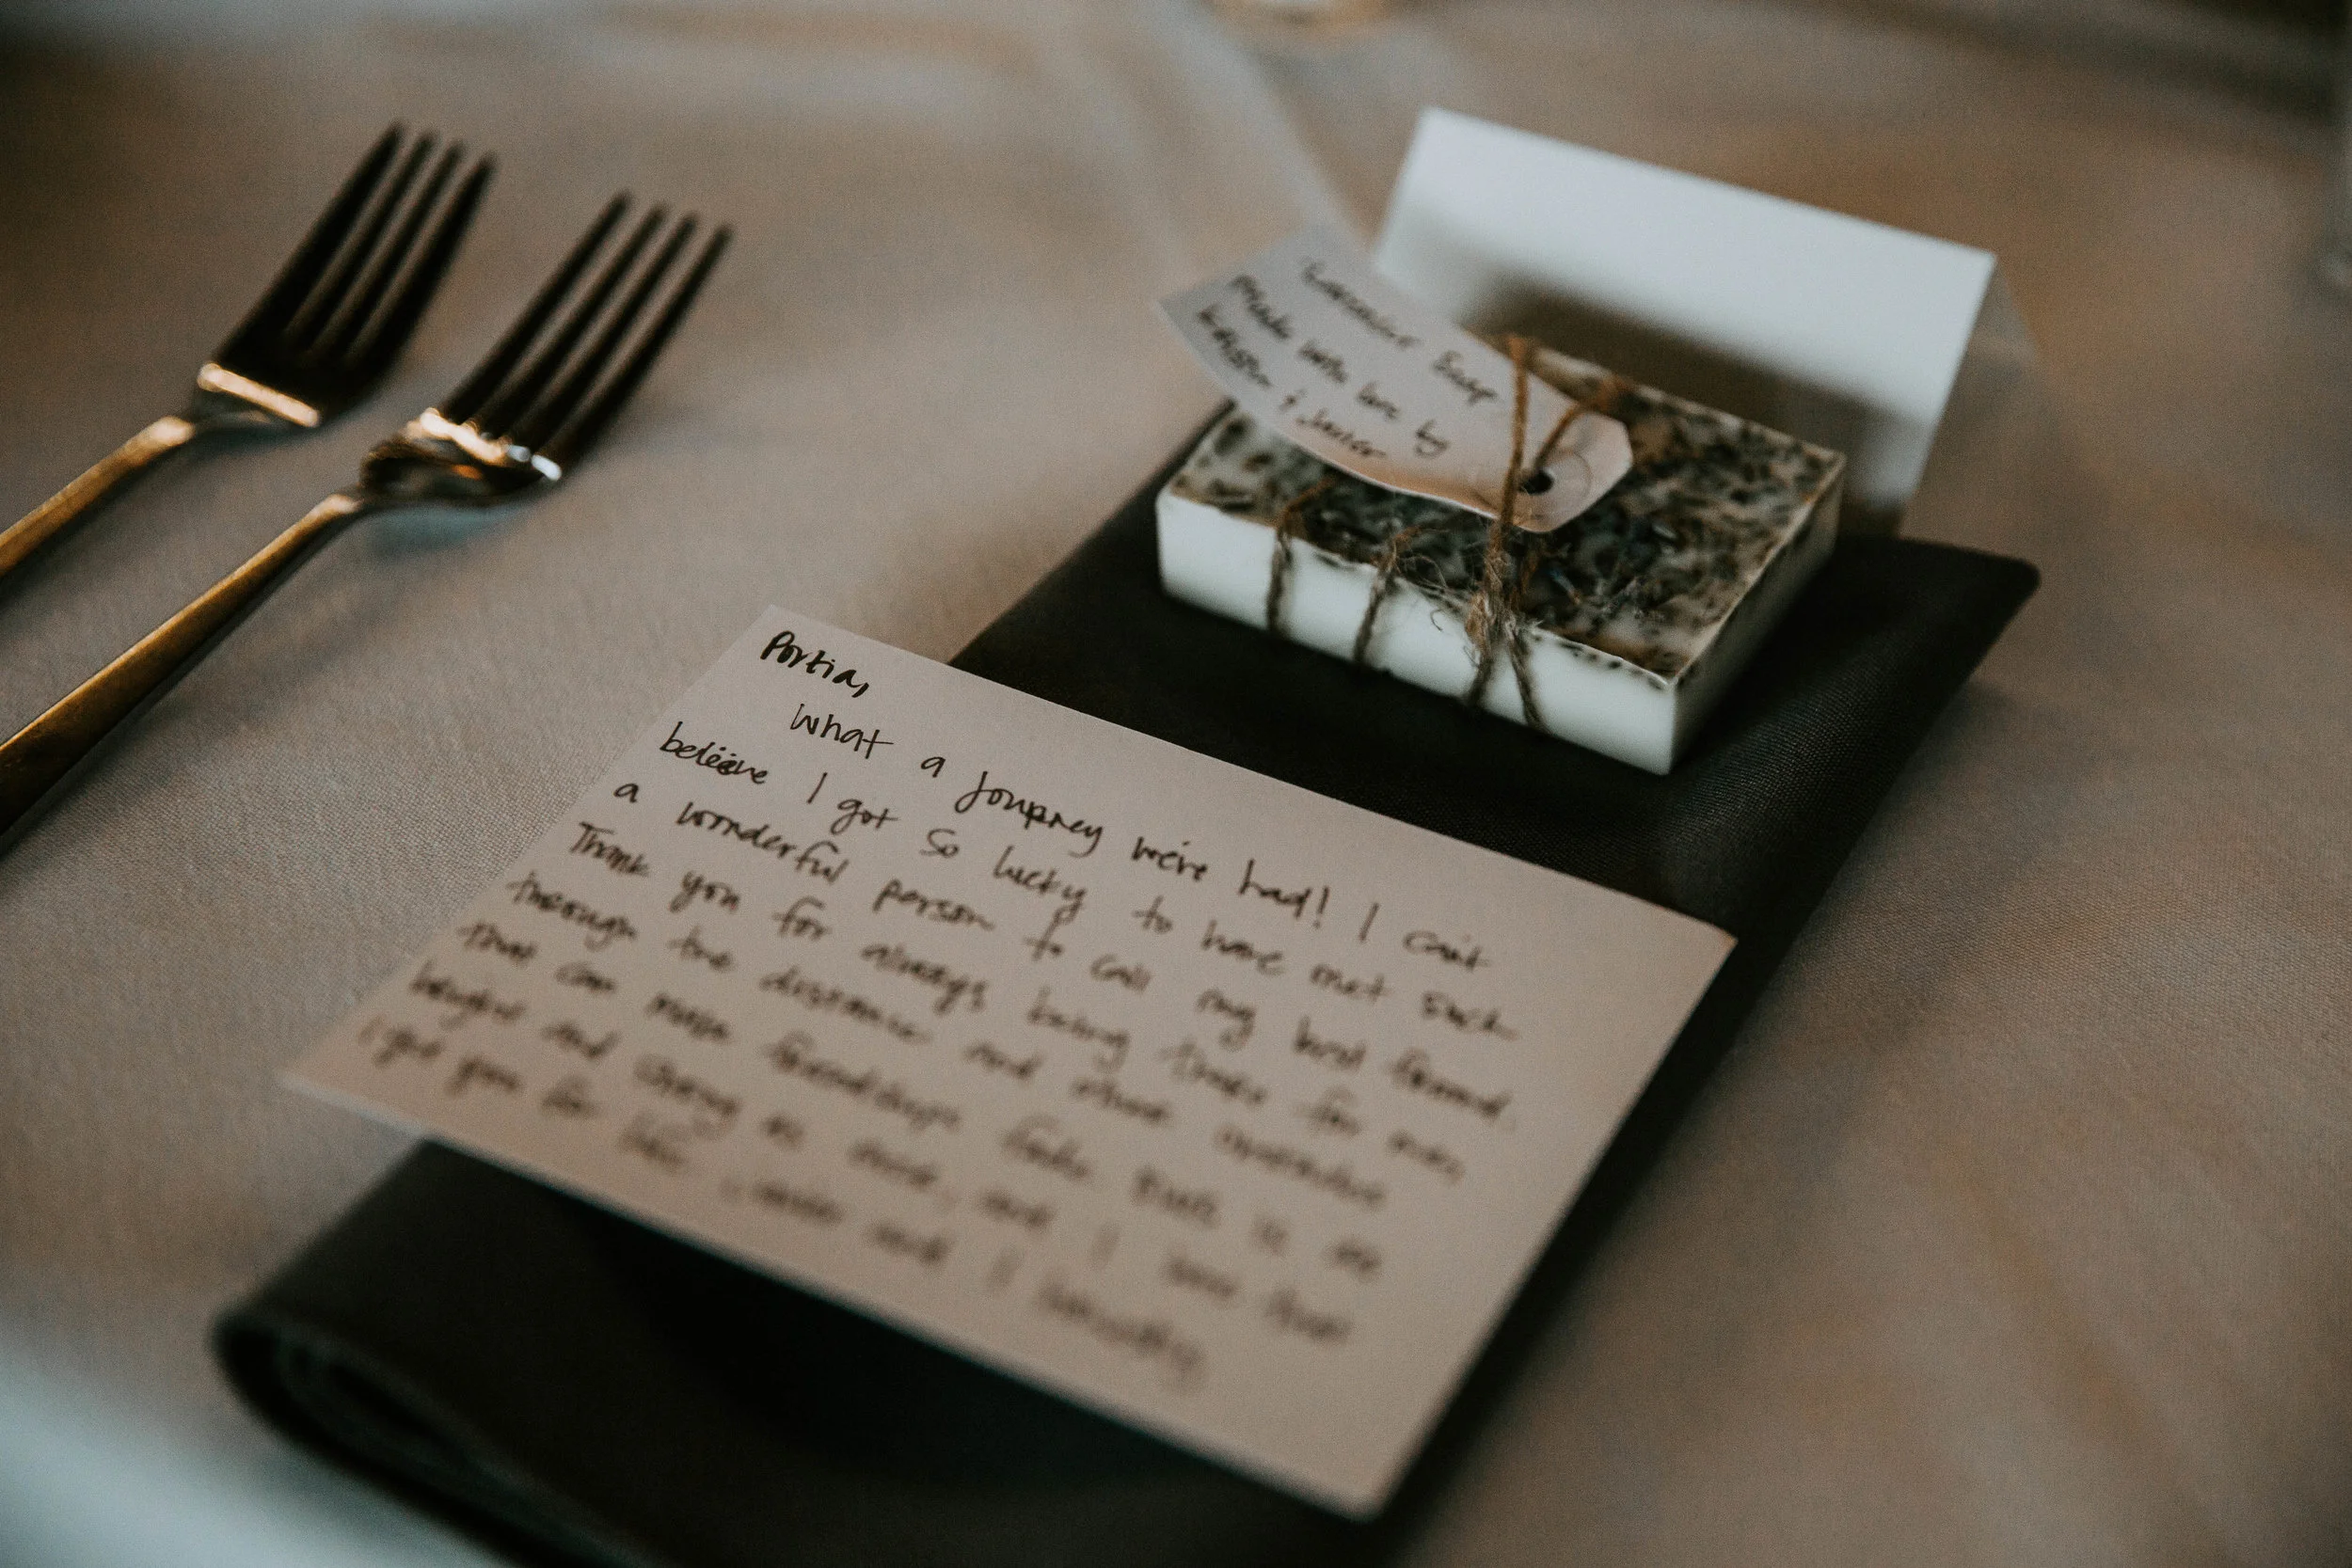 Lavender Soap
Made with love by
& Javier
Portia,
What a journey we've had! I can't
believe I got so lucky to have met such
a wonderful person to call my best friend.
Thank you for always being there for me,
through the distance and other
that can make friendships fade. Ours is as
bright and strong as ever, and I love that
I got you for life. Javier and I